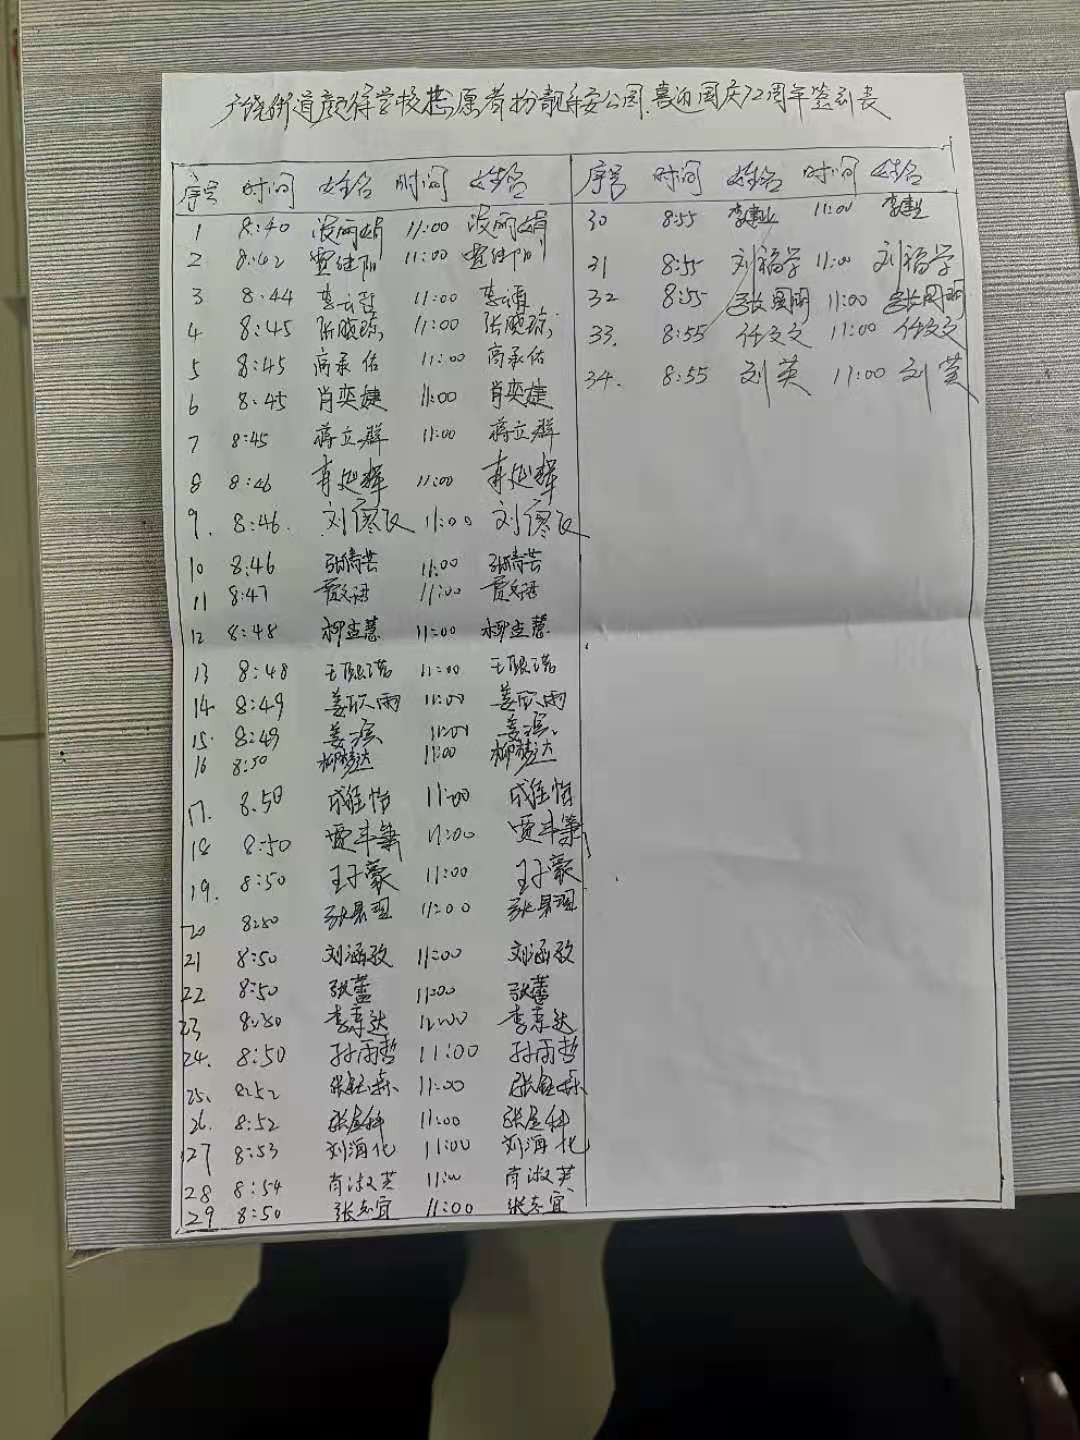 广饶街道颜徐学校志愿者扮靓乐安公园.喜迎国庆72周年签到表
序号 时间 姓名 时间 姓名
1 8:40 11:00
2 8:42 11:00
3 8:44 11:00
4 8:45 张晓琼 11:00 张晓琼
5 8:45 高承佑 11:00 高承佑
6 8:45 肖奕婕 11:00 肖奕婕
7 8:45 蒋立群 11:00 蒋立群
8 8:46 11:00
9. 8:46. 刘 11:00 刘
10 8:46 张倩芸 11:00 张倩芸
11 8:47 11:00
12 8:48 11:00
13 8:48 11:00
14 8:49 姜欣雨 11:00 姜欣雨
15. 8:49 姜滨 11:00 姜滨
16 8:50 柳梦达 11:00 柳梦达
17. 8:50 成佳怡 11:00 成佳怡
18 8:50 11:00
19. 8:50 王子豪 11:00 王子豪
20 8:50 11:00
21 8:50 刘涵孜 11:00 刘涵孜
22 8:50 张蕾 11:00 张蕾
23 8:50 11:00
24. 8:50 孙雨哲 11:00 孙雨哲
25. 8:52 张钰森 11:00 张钰森
26. 8:52 张金科 11:00 张金科
27 8:53 刘海化 11:00 刘海化
28 8:54 肖淑英 11:00 肖淑英
29 8:50 张志宜 11:00 张志宜
序号 时间 姓名 时间 姓名
30 8:55 李建业 11:00 李建业
31 8:55 刘福学 11:00 刘福学
32 8:55 张国明 11:00 张国明
33. 8:55 任文文 11:00 任文文
34. 8:55 刘英 11:00 刘英